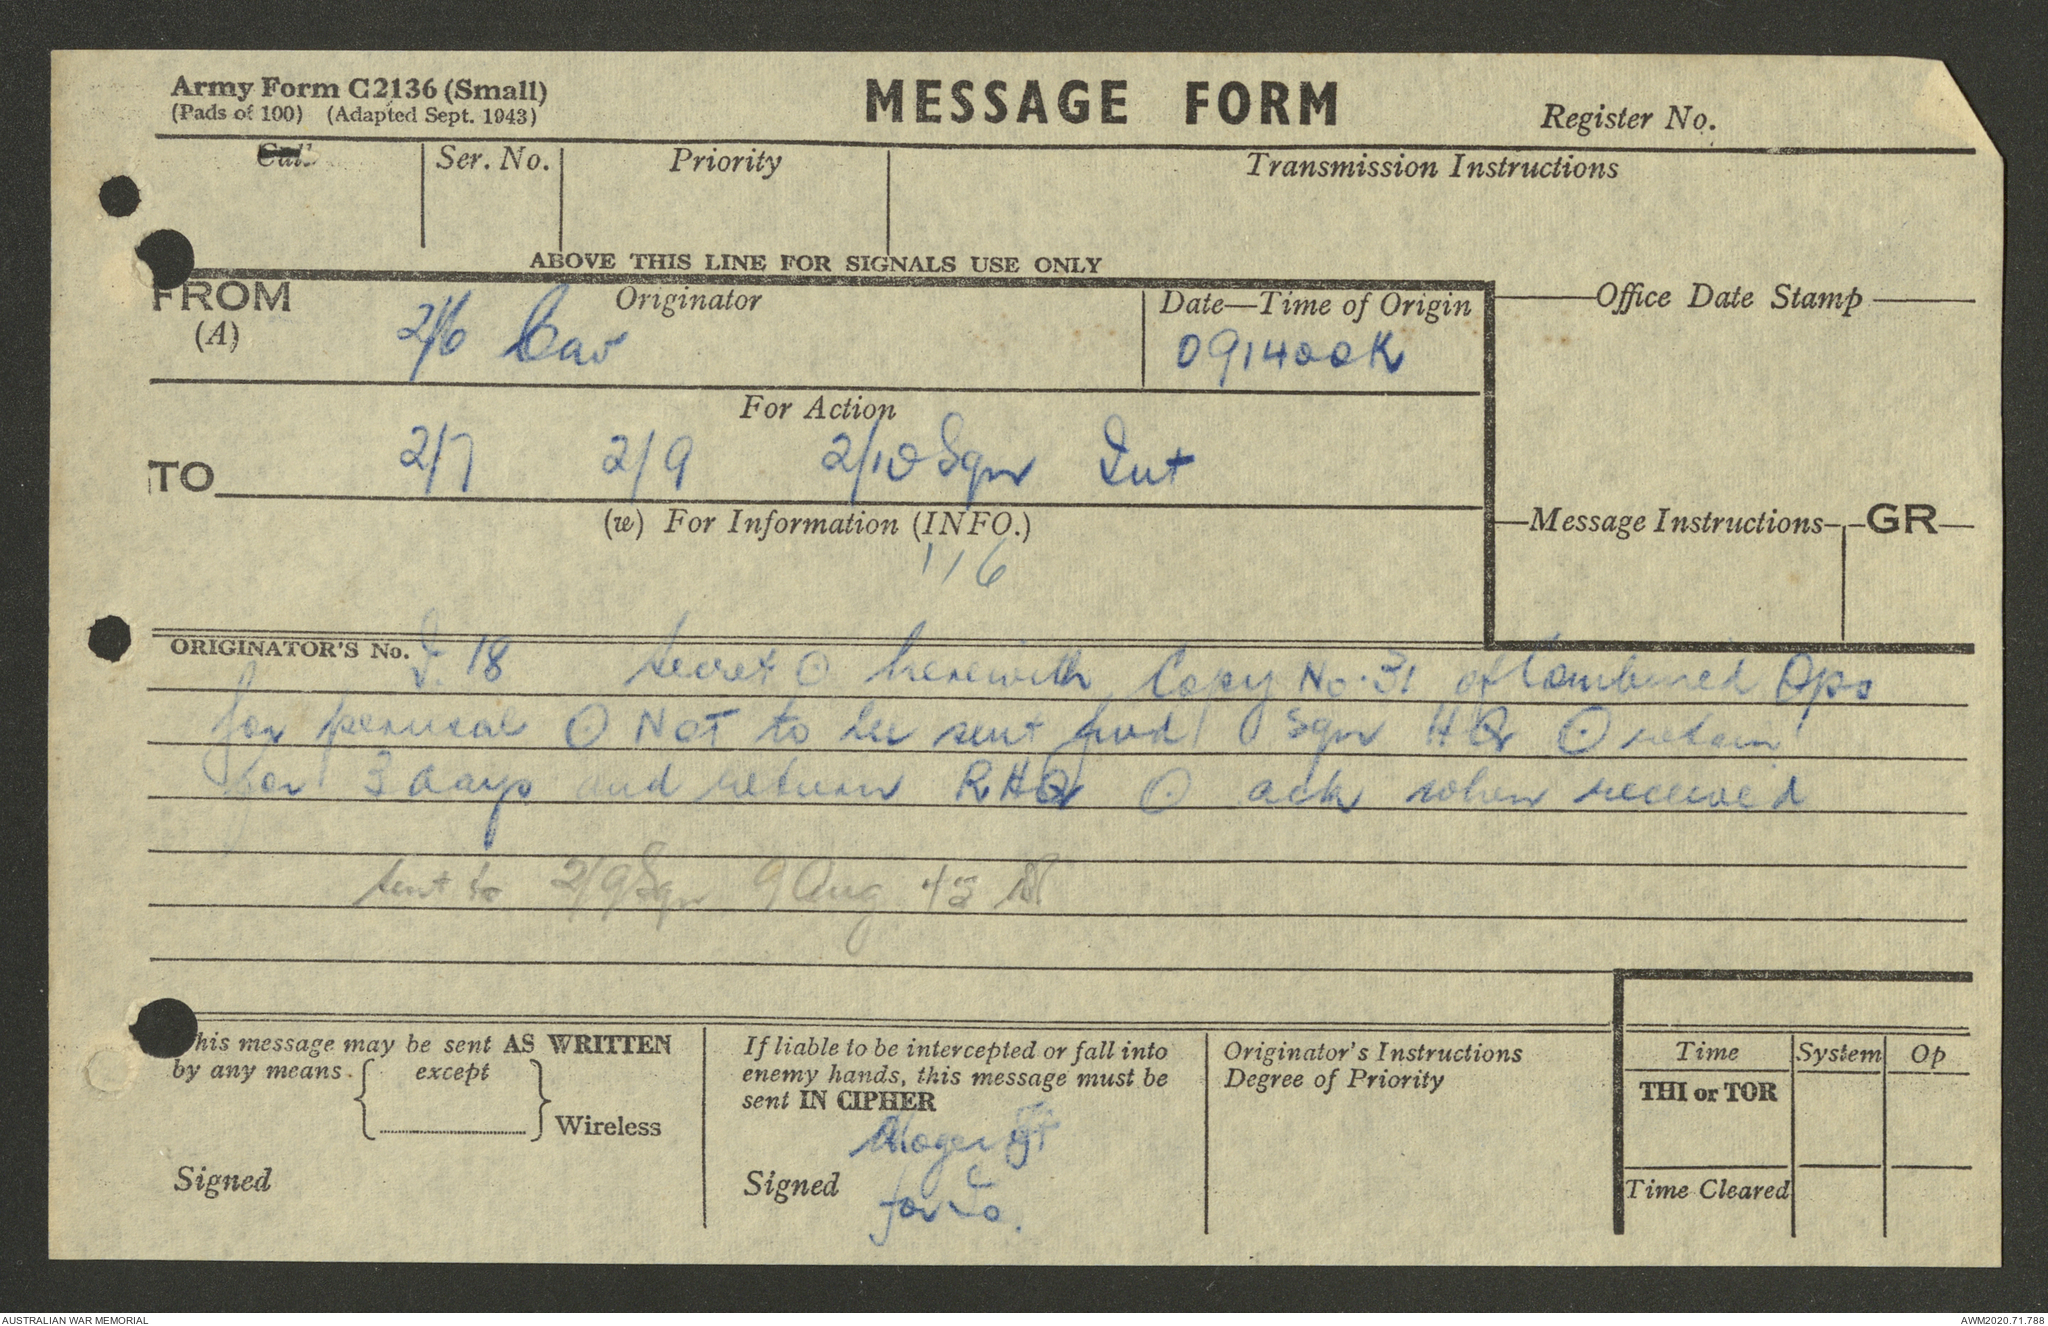 Army Form C2136 (Small)
(Pads of 100) (Adapted Sept. 1943)
MESSAGE FORM
Register No.
Call
Ser. No.
Priority
Transmission Instructions
ABOVE THIS LINE FOR SIGNALS USE ONLY
FROM
(A)
Originator
2/6 Cav
Date—Time of Origin
091400K
Office Date Stamp
For Action
TO
2/7 2/9 2/10 Sqn Int
(w) For Information (INFO.)
116
Message Instructions
GR
ORIGINATOR'S No. I. 18 Secret ⊙ herewith Copy No. 31 of Combined Ops
for perusal ⊙ NOT to be sent fwd Sqn HQ ⊙ retain
for 3 days and return RHQ ⊙ ack when received
sent to 2/9 Sqn 9 Aug 45
This message may be sent AS WRITTEN
by any means except
Wireless
Signed
If liable to be intercepted or fall into
enemy hands, this message must be
sent IN CIPHER
Signed
for
Originator's Instructions
Degree of Priority
Time
System
Op
THI or TOR
Time Cleared
AUSTRALIAN WAR MEMORIAL
AWM2020.71.788